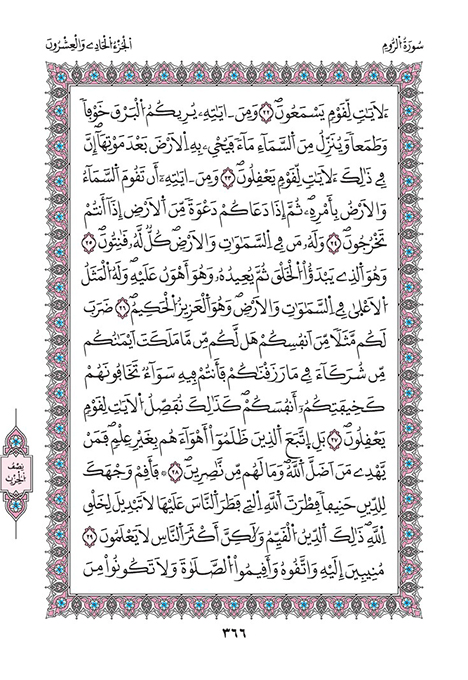 سُورَةُ الرُّومِ
الْجُزْءُ الْحَادِي وَالْعِشْرُونَ
ءَلَايَٰتٖ لِّقَوْمٖ يَسْمَعُونَۖ ٢٢ وَمِنَ اٰيَٰتِهِۦ يُرِيكُمُ اُ۬لْبَرْقَ خَوْفاٗ
وَطَمَعاٗ وَيُنَزِّلُ مِنَ اَ۬لسَّمَآءِ مَآءٗ فَيُحْيِۦ بِهِ اِ۬لْأَرْضَ بَعْدَ مَوْتِهَآۖ إِنَّ
فِے ذَٰلِكَ ءَلَايَٰتٖ لِّقَوْمٖ يَعْقِلُونَۖ ٢٣ وَمِنَ اٰيَٰتِهِۦٓ أَن تَقُومَ اَ۬لسَّمَآءُ
وَالْأَرْضُ بِأَمْرِهِۦۖ ثُمَّ إِذَا دَعَاكُمْ دَعْوَةٗ مِّنَ اَ۬لْأَرْضِ إِذَآ أَنتُمْ
تَخْرُجُونَۖ ٢٤ وَلَهُۥ مَن فِے اِ۬لسَّمَٰوَٰتِ وَالْأَرْضِۖ كُلّٞ لَّهُۥ قَٰنِتُونَۖ ٢٥
وَهُوَ اَ۬لذِے يَبْدَؤُاْ اُ۬لْخَلْقَ ثُمَّ يُعِيدُهُۥ وَهُوَ أَهْوَنُ عَلَيْهِۖ وَلَهُ اُ۬لْمَثَلُ
اُ۬لْأَعْلَىٰ فِے اِ۬لسَّمَٰوَٰتِ وَالْأَرْضِۖ وَهُوَ اَ۬لْعَزِيزُ اُ۬لْحَكِيمُۖ ٢٦ ضَرَبَ
لَكُم مَّثَلاٗ مِّنَ اَنفُسِكُمْ هَل لَّكُم مِّن مَّا مَلَكَتَ اَيْمَٰنُكُم
مِّن شُرَكَآءَ فِے مَا رَزَقْنَٰكُمْ فَأَنتُمْ فِيهِ سَوَآءٞ تَخَافُونَهُمْ
كَخِيفَتِكُمُۥٓ أَنفُسَكُمْۖ كَذَٰلِكَ نُفَصِّلُ اُ۬لْأٓيَٰتِ لِقَوْمٖ
يَعْقِلُونَۖ ٢٧ بَلِ اِ۪تَّبَعَ اَ۬لذِينَ ظَلَمُوٓاْ أَهْوَآءَهُم بِغَيْرِ عِلْمٖۖ فَمَنْ
يَّهْدِے مَنَ اَضَلَّ اَ۬للَّهُۖ وَمَا لَهُم مِّن نَّٰصِرِينَۖ ٢٨ فَأَقِمْ وَجْهَكَ
لِلدِّينِ حَنِيفاٗۖ فِطْرَتَ اَ۬للَّهِ اِ۬لتِے فَطَرَ اَ۬لنَّاسَ عَلَيْهَاۖ لَا تَبْدِيلَ لِخَلْقِ
اِ۬للَّهِۖ ذَٰلِكَ اَ۬لدِّينُ اُ۬لْقَيِّمُۖ وَلَٰكِنَّ أَكْثَرَ اَ۬لنَّاسِ لَا يَعْلَمُونَۖ ٢٩
مُنِيبِينَ إِلَيْهِ وَاتَّقُوهُ وَأَقِيمُواْ اُ۬لصَّلَوٰةَ وَلَا تَكُونُواْ مِنَ
نِصْفُ
الْحِزْبِ
٣٦٦